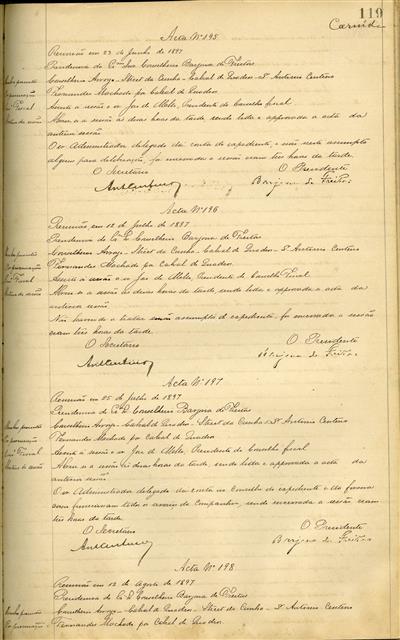 119
Carnide
Acta Nº 195
Reunião em 23 de Junho de 1897
Presidencia do Conselheiro Barjona de Freitas
Conselheiro Arroyo - Street da Cunha - Cabral de Quadros - Sr. Antonio Centeno
Fernandes Machado por Cabral de Quadros.
Assiste á sessão o sr. José de Mello, Presidente do Conselho fiscal
Abriu-se a sessão ás duas horas da tarde sendo lida e approvada a acta da
anterior sessão
O sr. Administrador delegado dá conta do expediente, e não havendo assumpto
algum para deliberação, foi encerrada a sessão eram tres horas da tarde.
O Secretario O Presidente
Barjona de Freitas
Acta Nº 196
Reunião em 12 de Julho de 1897
Presidencia do Conselheiro Barjona de Freitas
Conselheiro Arroyo - Street da Cunha - Cabral de Quadros - Sr. Antonio Centeno
Fernandes Machado por Cabral de Quadros.
Assiste á sessão o sr. José de Mello, Presidente do Conselho Fiscal
Abriu-se a sessão ás duas horas da tarde, sendo lida e approvada a acta da
anterior sessão.
Não havendo a tratar assumptos de expediente, foi encerrada a sessão
eram tres horas da tarde.
O Secretario O Presidente
Barjona de Freitas
Acta Nº 197
Reunião em 25 de Julho de 1897
Presidencia do Conselheiro Barjona de Freitas
Conselheiro Arroyo - Cabral de Quadros - Street da Cunha - Sr. Antonio Centeno
Fernandes Machado por Cabral de Quadros
Assiste á sessão o sr. José de Mello, Presidente do Conselho fiscal
Abriu-se a sessão ás duas horas da tarde sendo lida e approvada a acta da
anterior sessão
O sr. Administrador delegado dá conta ao Conselho do expediente e da forma
como funccionam todos os serviços da Companhia, sendo encerrada a sessão eram
tres horas da tarde
O Secretario O Presidente
Barjona de Freitas
Acta Nº 198
Reunião em 12 de Agosto de 1897
Presidencia do Conselheiro Barjona de Freitas
Conselheiro Arroyo - Cabral de Quadros - Street da Cunha - Sr. Antonio Centeno
Fernandes Machado por Cabral de Quadros.